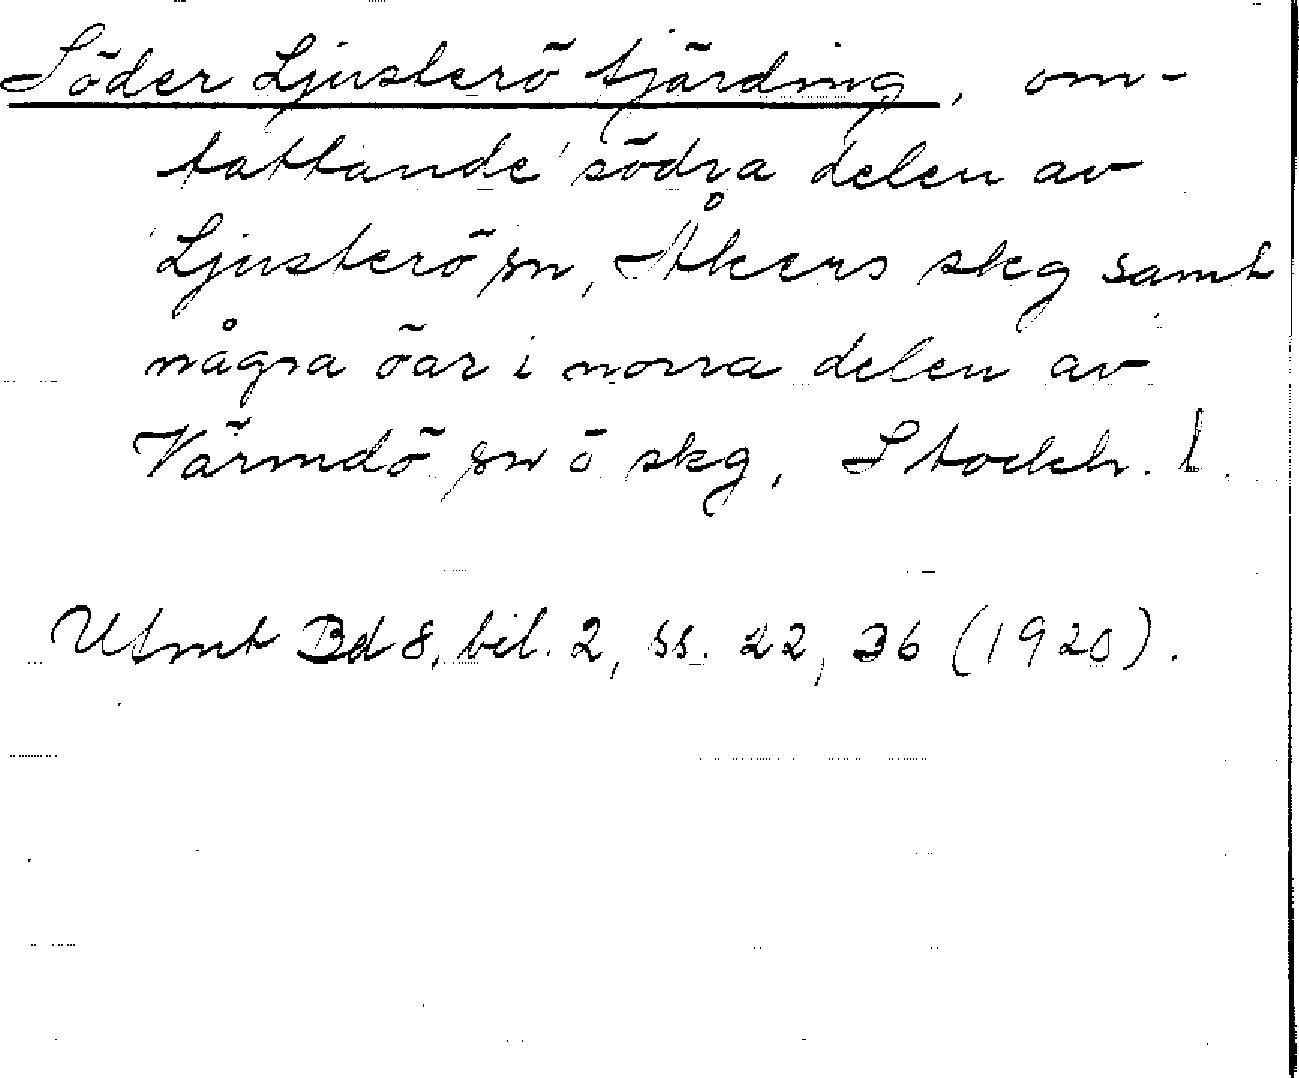 Söder Ljusterö fjärding, om-
fattande södra delen av
Ljusterö sn, Åkers skg samt
några öar i norra delen av
Värmdö sn ö skg, Stockh. l.
Utmt Bd 8, bil. 2, ss. 22, 36 (1920).